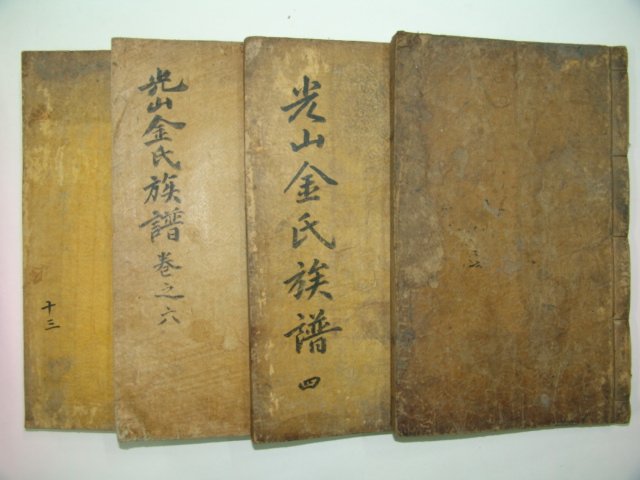 光山金氏族譜 四
光山金氏族譜 卷之六
十三